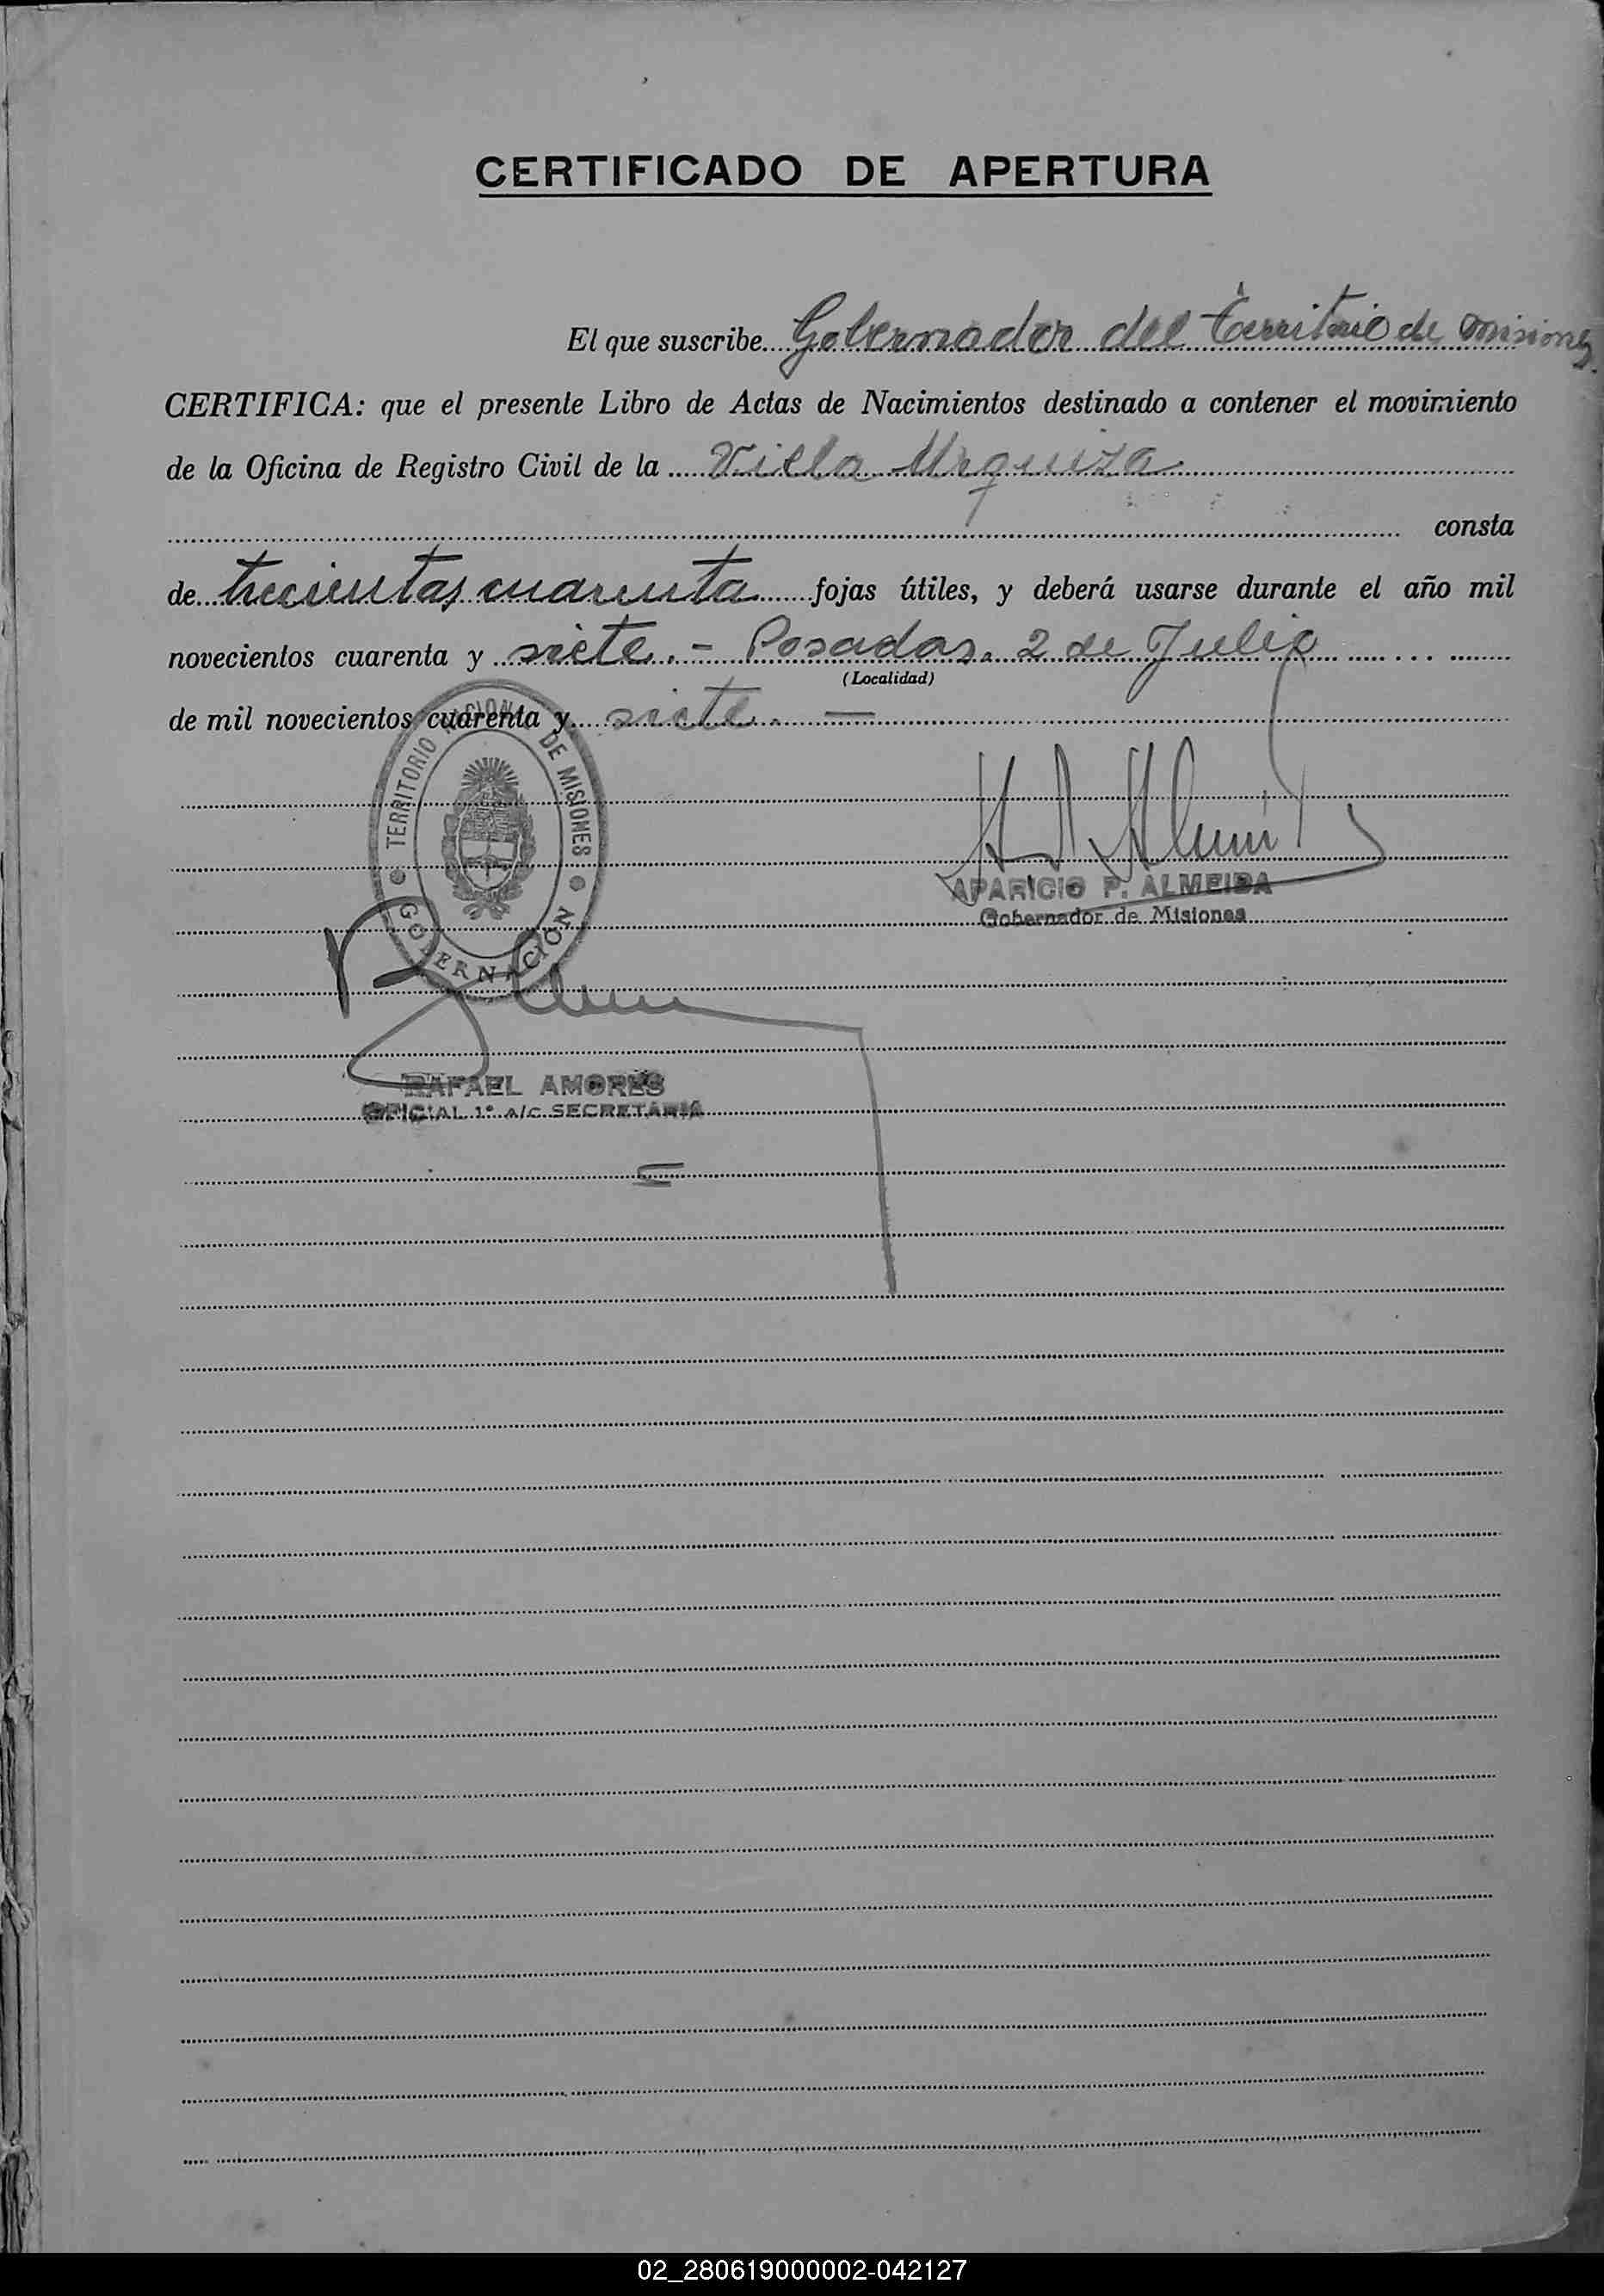 CERTIFICADO DE APERTURA
El que suscribe Gobernador del Territorio de Misiones
CERTIFICA: que el presente Libro de Actas de Nacimientos destinado a contener el movimiento
de la Oficina de Registro Civil de la Villa Urquiza
consta
de trecientas cuarenta fojas útiles, y deberá usarse durante el año mil
novecientos cuarenta y siete. - Posadas. 2 de Julio
(Localidad)
de mil novecientos cuarenta y siete. —
TERRITORIO NACIONAL DE MISIONES
GOBERNACIÓN
APARICIO P. ALMEIDA
Gobernador de Misiones
RAFAEL AMORES
OFICIAL 1º A/C. SECRETARIA
02_280619000002-042127